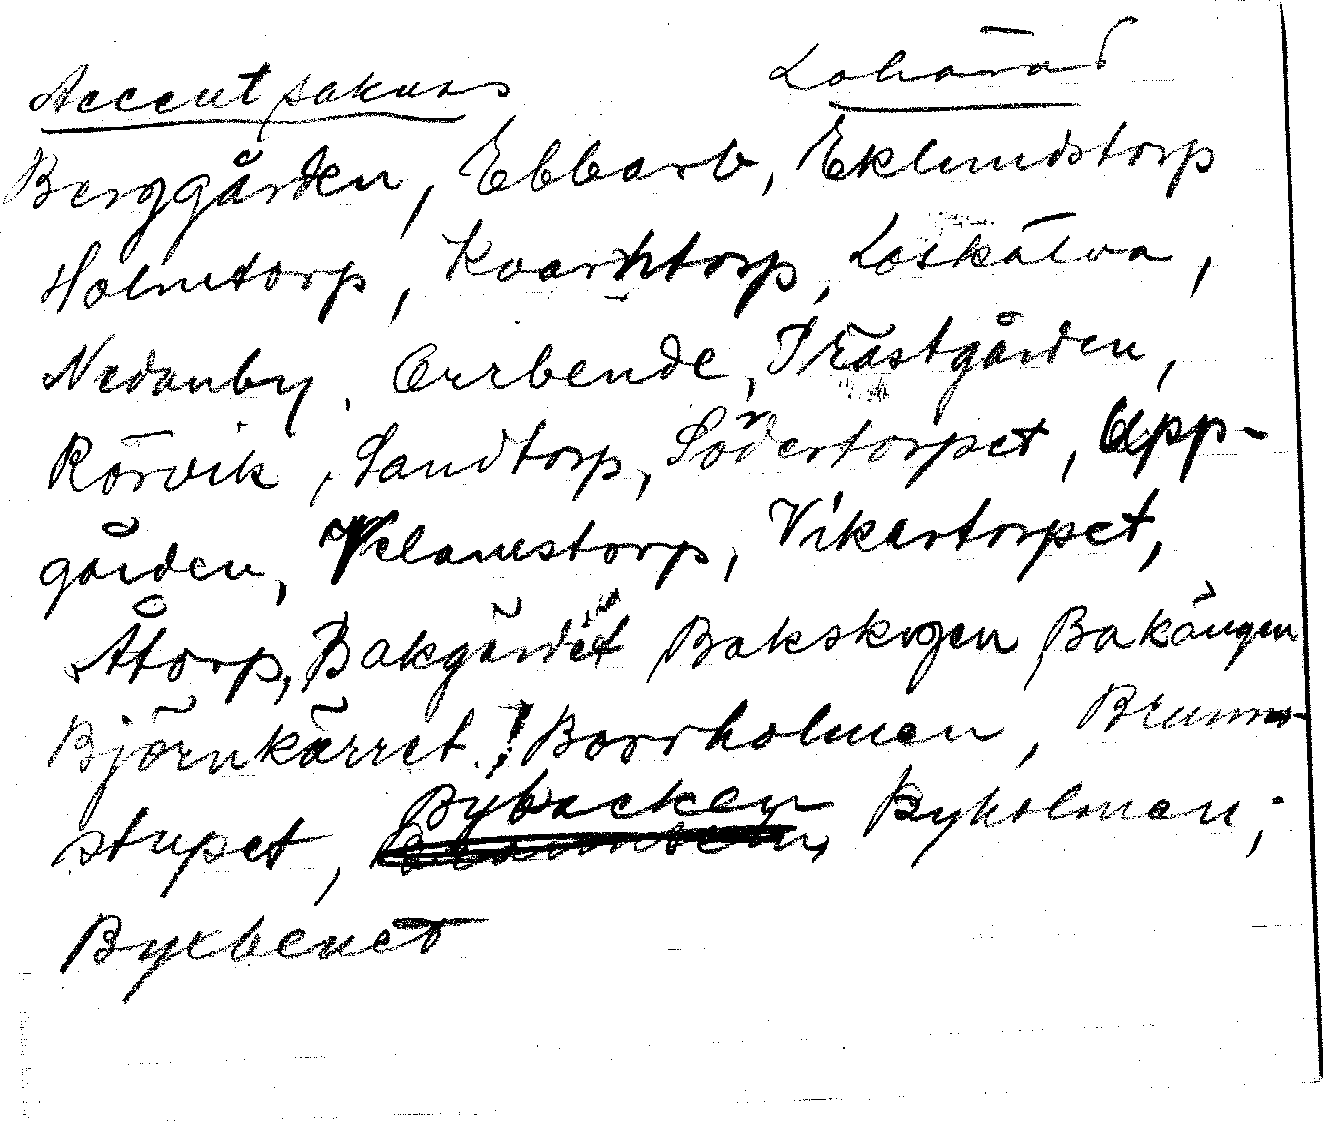 Accent saknas Lohärad
Berggården, Ebbarb, Eklundstorp
Holmtorp, Kvarntorp, Loskälva,
Nedanby, Orrbende, Prästgården,
Rörvik, Sandtorp, Södertorpet, Upp-
gården, Velamstorp, Vikartorpet,
Åtorp, Bakgärdet Bakskogen Bakängen
Björnkärret, Borrholmen, Brunns-
stupet, Bybacken Byholmen,
Byxbenet